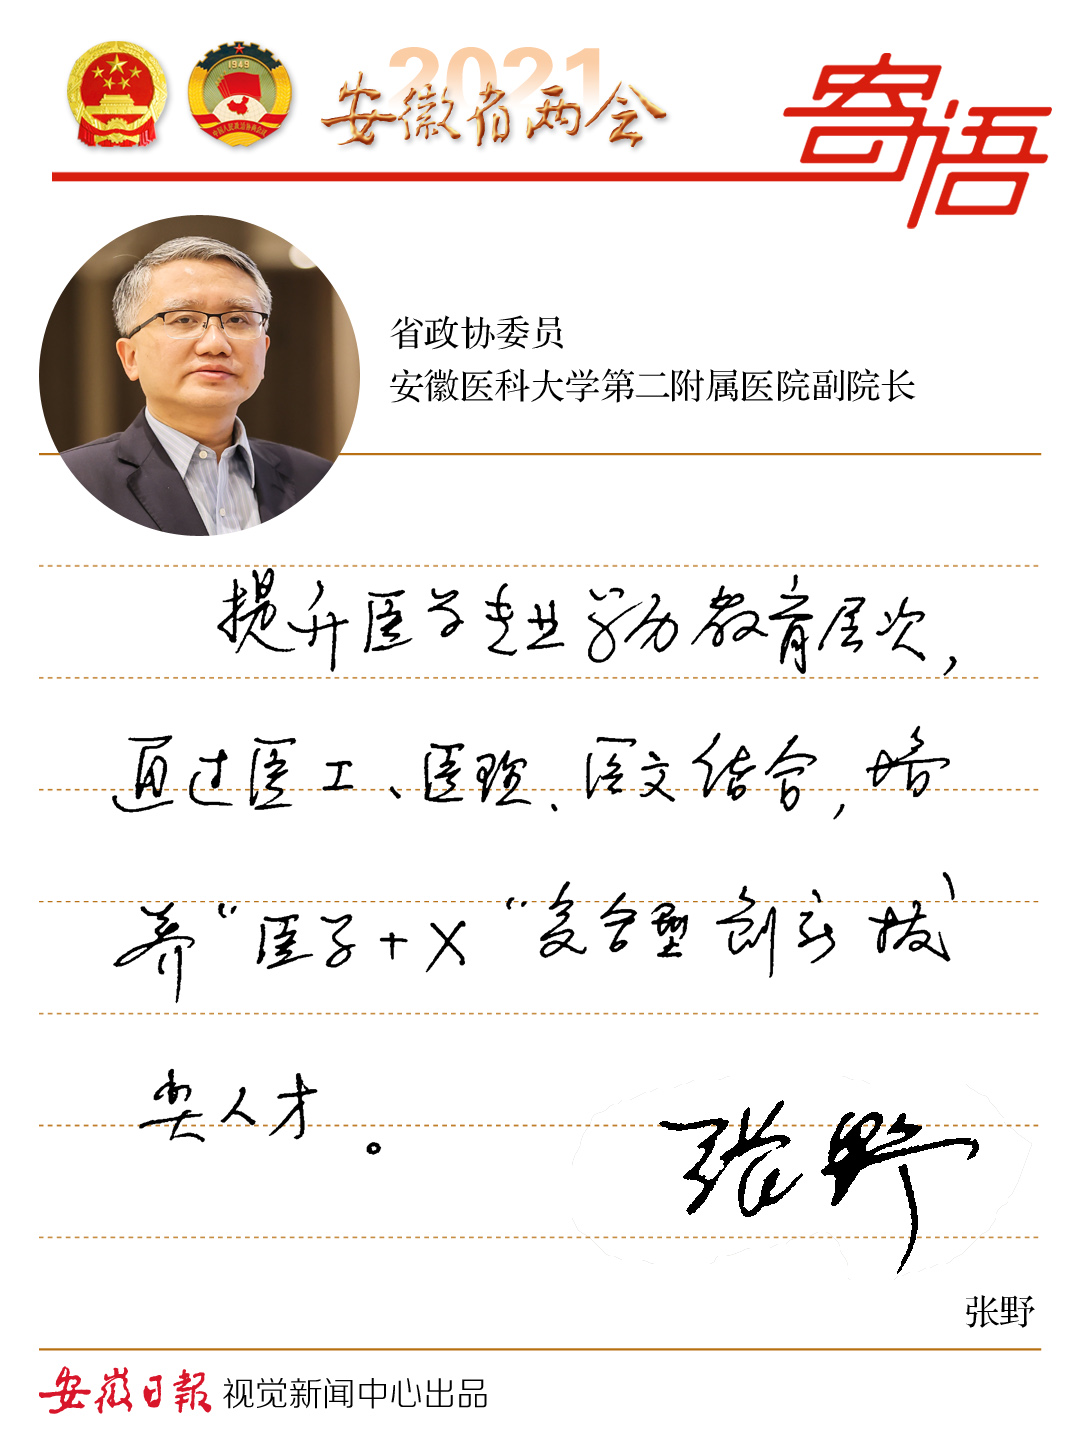 2021
安徽省两会
寄语
1949
中国人民政治协商会议
省政协委员
安徽医科大学第二附属医院副院长
提升医学专业学历教育层次，
通过医工、医理、医文结合，培
养“医学+X“复合型创新拔
尖人才。
张野
张野
安徽日报 视觉新闻中心出品